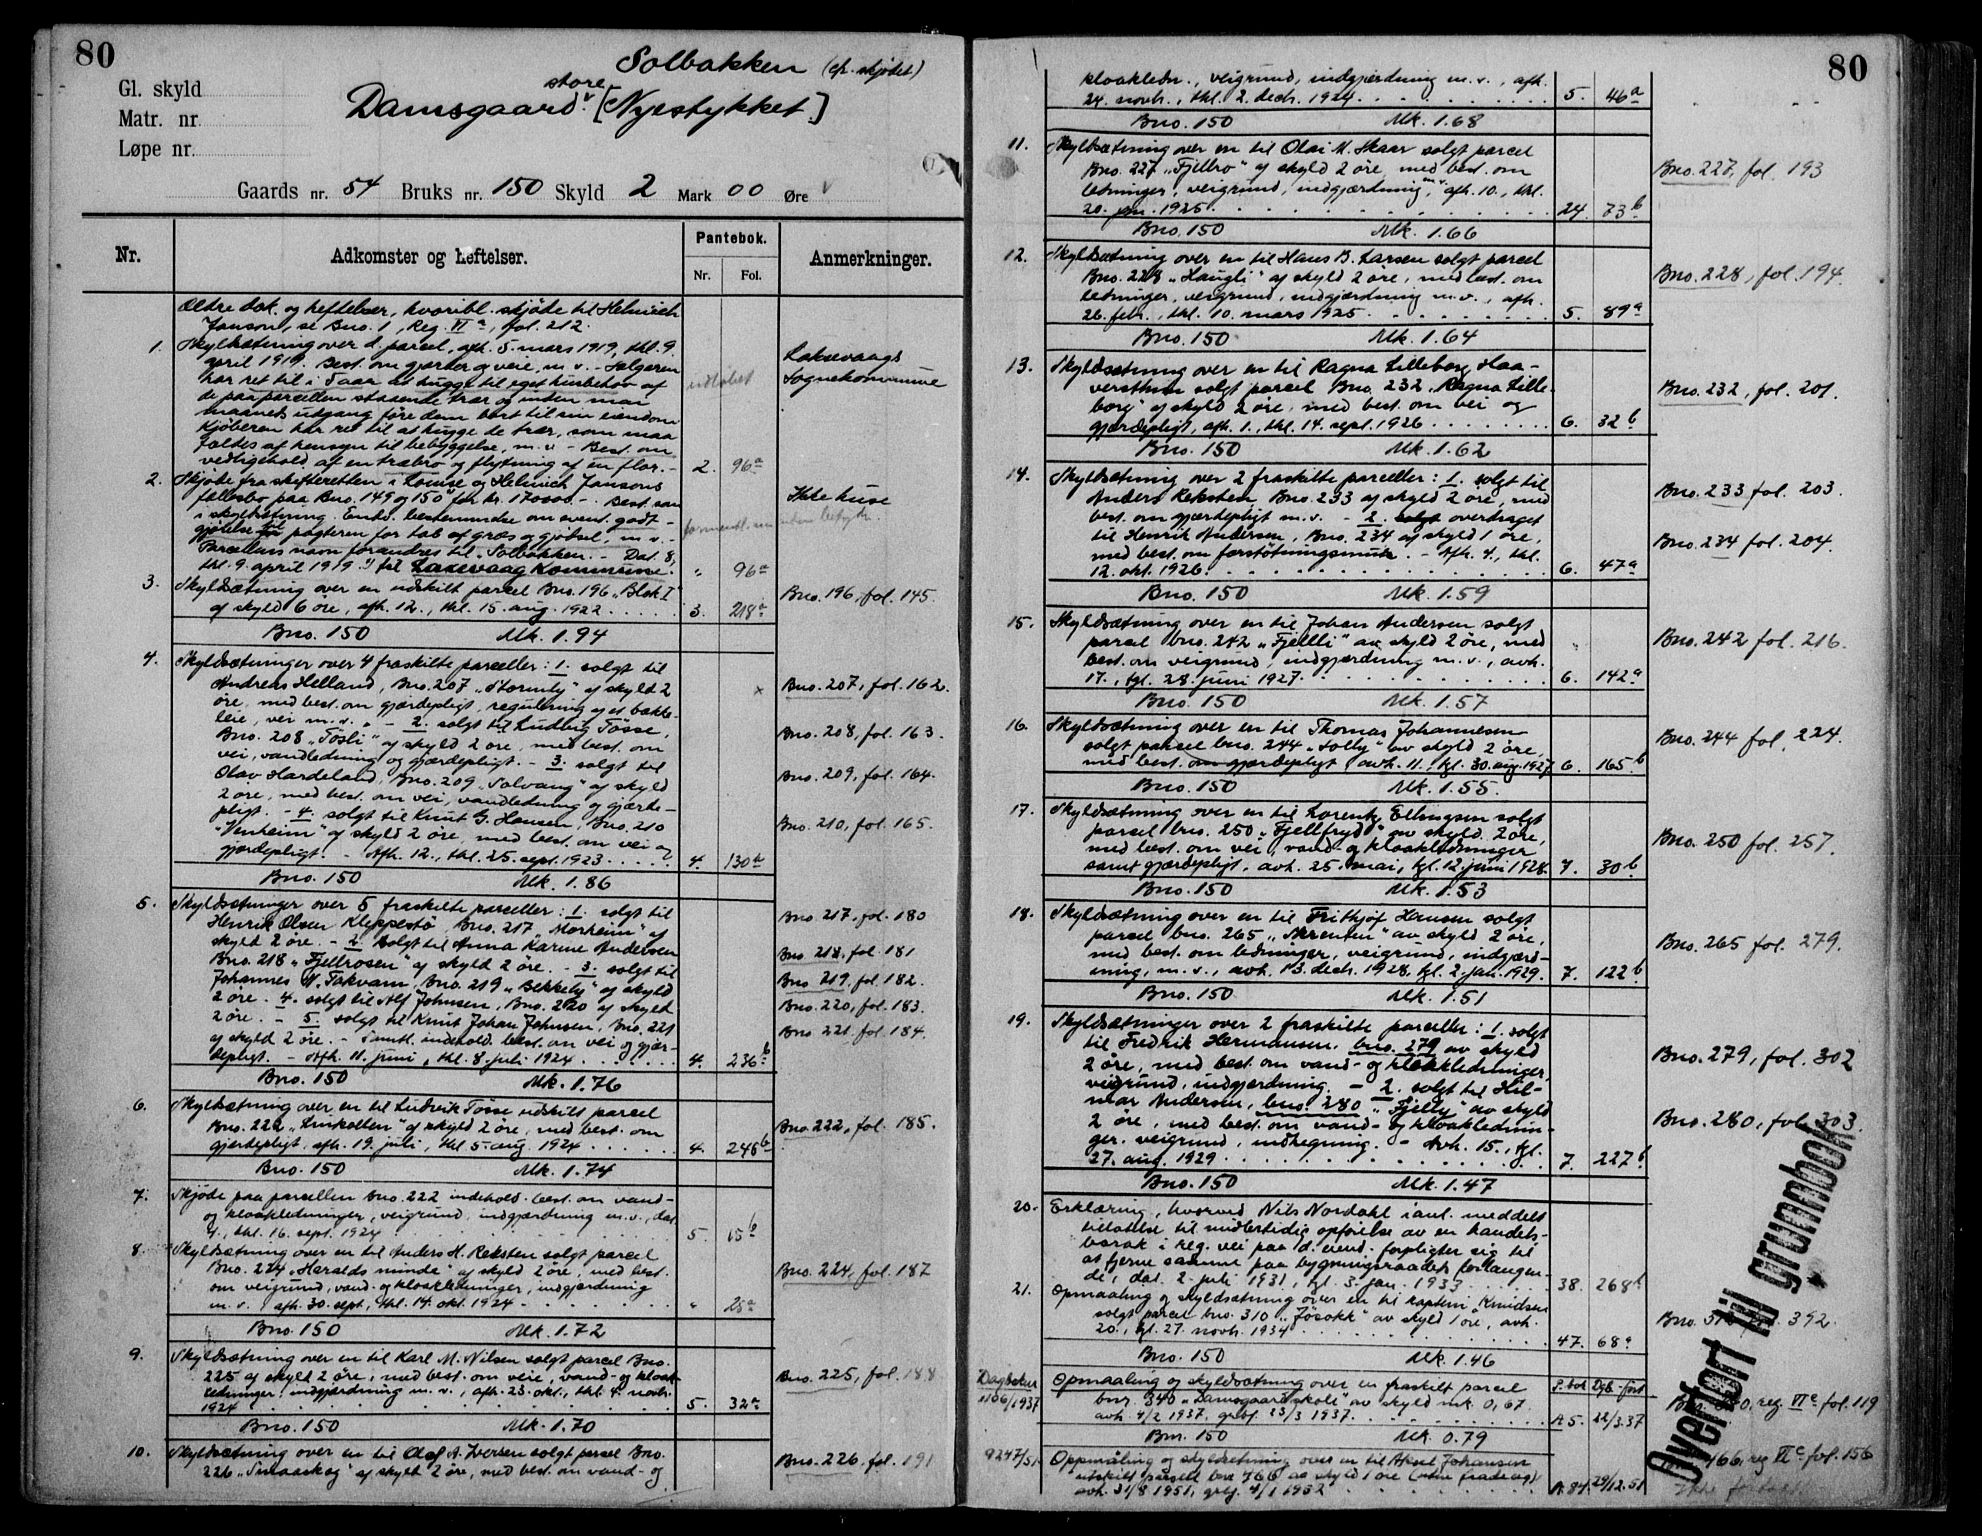 80
Solbakken (cfr. skjødet)
Gl. skyld
Matr. nr.
Løpe nr.
Damsgaard store [Nyestykket]
Gaards nr. 54 Bruks nr. 150 Skyld 2 Mark 00 Øre
Nr.
Adkomster og heftelser.
Pantebok.
Nr. Fol.
Anmerkninger.
Ældre dok. og heftelser, hvoribl. skjøde til Helmich
Janson, se Bno. 1, Reg. VI a, fol. 212.
1. Skyldsætning over d. parcel, afh. 5. mars 1919, thl. 9.
april 1919. Best. om gjærder og veie, m. v. - Sælgeren
har ret til i 5 aar at hugge til eget husbehov af
de paa parcellen staaende trær og inden mai
maaneds udgang føre dem bort til sin eiendom
Kjøberen har ret til at hugge de trær, som maa
fældes af hensyn til bebyggelse, m. v. - Best. om
vedligehold af en træbro og flytning af en flor. - 2. 96a
udløbet
Laksevaags
Sognekommune
2. Skjøde fra skifteretten i Louise og Helmich Jansons
fællesbo paa Bno. 149 og 150 for kr. 170000 -. Best. som
i skyldsætning. Endv. bestemmelse om event. godt-
gjørelse til pagteren for tab af græs og gjødsel, m. v. -
Parcellens navn forandres til „Solbakken. - Dat. 8,
thl. 9. april 1919. til Laksevaag Kommune. „ 96a
Ikke huse
3. Skyldsætning over en udskilt parcel Bno. 196 „Blok I"
af skyld 6 øre, afh. 12., thl. 15. aug. 1922 . . . . 3. 218a
Bno. 196, fol. 145.
Bno. 150 Mk. 1.94
4. Skyldsætninger over 4 fraskilte parceller: 1. solgt til
Andreas Helland, Bno. 207 „Stormly" af skyld 2
øre, med best. om gjærdepligt, regulering af et bække-
leie, vei m. v. - 2. solgt til Ludvig Tøsse,
Bno. 208 „Tøsli" af skyld 2 øre, med best. om
vei, vandledning og gjærdepligt. - 3. solgt til
Olav Hardeland, Bno. 209 „Solvang" af skyld
2 øre, med best. om vei, vandledning og gjærde-
pligt. - 4. solgt til Knut G. Hansen, Bno. 210
„Venheim" af skyld 2 øre, med best. om vei og
gjærdepligt. - Afh. 12., thl. 25. sept. 1923 . . . . 4. 130a
Bno. 207, fol. 162.
Bno. 208, fol. 163.
Bno. 209, fol. 164.
Bno. 210, fol. 165.
Bno. 150 Mk. 1.86
5. Skyldsætninger over 5 fraskilte parceller: 1. solgt til
Henrik Olsen Kleppestø, Bno. 217 „Morheim" af
skyld 2 øre. - 2. solgt til Anna Karine Andersen
Bno. 218 „Fjellrosen" af skyld 2 øre. - 3. solgt til
Johannes N. Takvam, Bno. 219 „Bekkely" af skyld
2 øre. 4. solgt til Alf Johnsen, Bno. 220 af skyld
2 øre. - 5. solgt til Knut Johan Johnsen, Bno. 221
af skyld 2 øre. - Samtl. indehold. best. om vei og gjær-
depligt. - Afh. 11. juni, thl. 8. juli 1924 . . . . 4. 236b
Bno. 217, fol. 180
Bno. 218, fol. 181
Bno. 219, fol. 182.
Bno. 220, fol. 183.
Bno. 221, fol. 184.
Bno. 150 Mk. 1.76
6. Skyldsætning over en til Ludvik Tøsse udskilt parcel
Bno. 222 af skyld 2 øre, med best. om
gjærdepligt, afh. 19. juli, thl. 5. aug. 1924 . . . . 4. 248b
Bno. 222, fol. 185.
Bno. 150 Mk. 1.74
7. Skjøde paa parcellen bno. 222 indehold. best. om vand-
og kloakledninger, veigrund, indgjærdning m. v., dat.
9., thl. 16. sept. 1924 . . . . 5. 15b
8. Skyldsætning over en til Anders H. Reksten solgt parcel
Bno. 224 „Haralds minde" af skyld 2 øre, med best.
om veigrund, vand- og kloakledninger, indgjærdning
m. v., afh. 30. sept., thl. 14. okt. 1924 . . . . „ 28a
Bno. 224, fol. 187
Bno. 150 Mk. 1.72
9. Skyldsætning over en til Karl M. Nilsen solgt parcel Bno.
225 af skyld 2 øre, med best. om veie, vand- og kloak-
ledninger, indgjærdning m. v., afh. 23. okt., thl. 4. novbr.
1924 . . . . 5. 32a
Bno. 225, fol. 188
Bno. 150 Mk. 1.70
10. Skyldsætning over en til Olaf A. Iversen solgt parcel Bno.
226 „Smaaskog" af skyld 2 øre, med best. om vand- og
Bno. 226, fol. 191
80
kloakledn., veigrund, indgjærdning m. v., afh.
24. novbr., thl. 2. decbr. 1924 . . . . 5. 46a
Bno. 150 Mk. 1.68
11. Skyldsætning over en til Olai M. Skaar solgt parcel
Bno. 227 „Fjellbro" af skyld 2 øre, med best. om
ledninger, veigrund, indgjærdning m. v., afh. 10., thl.
20. jan. 1925 . . . . 24. 73b
Bno. 227, fol. 193
Bno. 150 Mk. 1.66
12. Skyldsætning over en til Hans B. Larsen solgt parcel
Bno. 228 „Haugli" af skyld 2 øre, med best. om
ledninger, veigrund, indgjærdning m. v., afh.
26. febr., thl. 10. mars 1925 . . . . 5. 89a
Bno. 228, fol. 194.
Bno. 150 Mk. 1.64
13. Skyldsætning over en til Ragna Lilleborg Haa-
versthun solgt parcel Bno. 232 „Ragna Lille-
borg" af skyld 2 øre, med best. om vei og
gjærdepligt, afh. 1., thl. 14. sept. 1926 . . . . 6. 32b
Bno. 232, fol. 201.
Bno. 150 Mk. 1.62
14. Skyldsætning over 2 fraskilte parceller: 1. solgt til
Anders Reksten Bno. 233 af skyld 2 øre, med
best. om gjærdepligt m. v. - 2. solgt overdraget
til Henrik Andersen, Bno. 234 af skyld 1 øre,
med best. om forstøtningsmur. - Afh. 4., thl.
12. okt. 1926 . . . . 6. 47a
Bno. 233 fol. 203.
Bno. 234 fol. 204.
Bno. 150 Mk. 1.59
15. Skyldsætning over en til Johan Andersen solgt
parcel bno. 242 „Fjellli" av skyld 2 øre, med
best. om veigrund, indgjærdning m. v., avh.
17., tgl. 28. juni 1927 . . . . 6. 142a
Bno. 242 fol. 216.
Bno. 150 Mk. 1.57
16. Skyldsætning over en til Thomas Johannesen
solgt parcel bno. 244 „Solly" av skyld 2 øre,
med best. om gjærdepligt, avh. 11., tgl. 30. aug. 1927. 6. 165b
Bno. 244 fol. 224.
Bno. 150 Mk. 1.55.
17. Skyldsætning over en til Lorentz Ellingsen solgt
parcel bno. 250 „Fjellfryd" av skyld 2 øre,
med best. om vei, vand- og kloakledninger
samt gjærdepligt, avh. 25. mai, tgl. 12. juni 1928. 7. 30b
Bno. 250 fol. 257.
Bno. 150 Mk. 1.53
18. Skyldsætning over en til Frithjof Hansen solgt
parcel bno. 265 „Skrenten" av skyld 2 øre,
med best. om ledninger, veigrund, indgjærd-
ning, m. v., avh. 13. decbr. 1928, tgl. 2. jan. 1929. 7. 122b
Bno. 265 fol. 279.
Bno. 150 Mk. 1.51
19. Skyldsætninger over 2 fraskilte parceller: 1. solgt
til Fredrik Hermansen, bno. 279 av skyld
2 øre, med best. om vand- og kloakledninger,
veigrund, indgjærdning. - 2. solgt til Hil-
mar Andersen, bno. 280 „Fjelly" av skyld
2 øre, med best. om vand- og kloakledning-
er, veigrund, indhegning. - Avh. 15., tgl.
27. aug. 1929 . . . . 7. 227b
Bno. 279, fol. 302
Bno. 280, fol. 303.
Bno. 150 Mk. 1.47
20. Erklæring, hvorved Nils Nordahl i anl. meddelt
tillatelse til midlertidig opførelse av en handels-
barak i reg. vei paa d. eiend. forpligter sig til
at fjerne samme paa bygningsraadets forlangen-
de, dat. 2. juli 1931, tgl. 3. jan. 1933 . . . 38. 268b
21. Opmaaling og skyldsætning over en til kaptein Knudsen
solgt parcel bno. 310 „Jøsokk" av skyld 1 øre, avh.
20., tgl. 27. novbr. 1934 . . . . 47. 68a
Bno. 310 fol. 392.
Bno. 150 Mk. 1.46
Dagboknr.
1106/1937 Opmaaling og skyldsætning over en fraskilt parcel
bnr. 340 „Damsgaard skole" av skyld mk. 0,67.
avh. 4/2 1937, grbf. 23/3 1937 . . . . A 5. 22/3.37
P. bok Dgb. - ført
Bnr. 340, reg. VII c fol. 119
Bnr. 150 Mk 0.79
9247/51. Oppmåling og skyldsetning over en til Aksel Johansen
utskilt parsell bnr 466 av skyld 1 øre
avh. 31/8 1951, grbf. 4/1 1952 . . . . A. 84. 29/12.51
466, reg VI c fol. 156
Overført til grunnbok